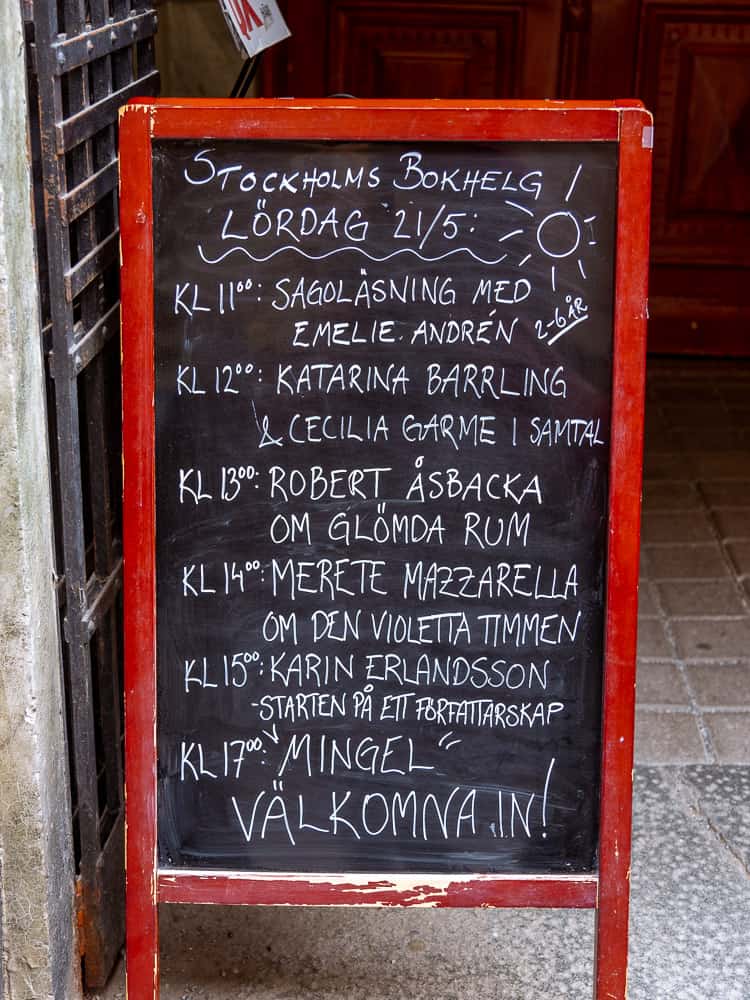 STOCKHOLMS BOKHELG
LÖRDAG 21/5:
KL 11⁰⁰: SAGOLÄSNING MED
EMELIE ANDRÉN 2-6 ÅR
KL 12⁰⁰: KATARINA BARRLING
& CECILIA GARME I SAMTAL
KL 13⁰⁰: ROBERT ÅSBACKA
OM GLÖMDA RUM
KL 14⁰⁰: MERETE MAZZARELLA
OM DEN VIOLETTA TIMMEN
KL 15⁰⁰: KARIN ERLANDSSON
-STARTEN PÅ ETT FÖRFATTARSKAP
KL 17⁰⁰: "MINGEL"
VÄLKOMNA IN!